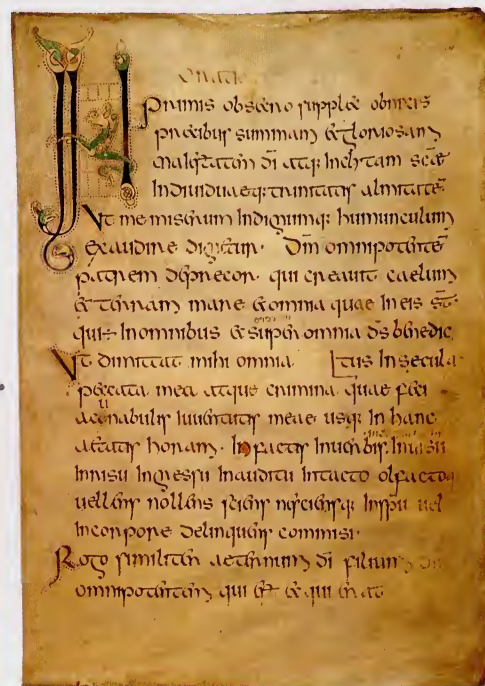 Oratio
IN primis obsecro supplex obnixis
precibus summam & gloriosam
maiestatem dī atq; inclytam scæ
individuaeq; trinitatis almitatē
Vt me miserum indignumq; humunculum
exaudire dignetur. Dm̄ omnipotentē
patrem deprecor. qui creauit caelum
& terram mare & omnia quae in eis st̄.
qui ÷ in omnibus & super omnia ds̄ benedic
Vt dimittat mihi omnia. tus in secula.
peccata mea atque crimina quae feci
a cunabulis iuuentutis meae usq; in hanc
aetatis horam. In factis in uerbis. in uisu
in risu in gressu in auditu in tacto olfactoq
uellens nollens sciens nesciensq; in spū uel
in corpore delinquens commisi.
Rogo similiter aeternum dī filium
omnipotentem qui est & qui erat